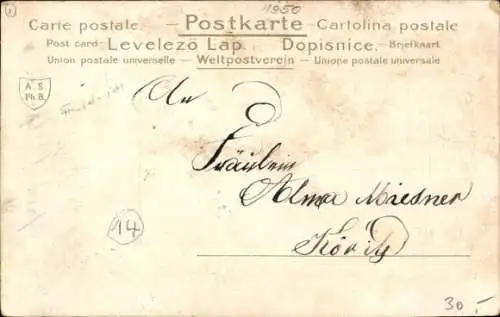 1950
Carte postale. — Postkarte — Cartolina postale
Post card. Levelező Lap. Dopisnice. — Briefkaart
Union postale universelle — Weltpostverein — Unione postale universale
A. S.
Ph. B.
An
Fräulein
Alma Miesner
14
30.-